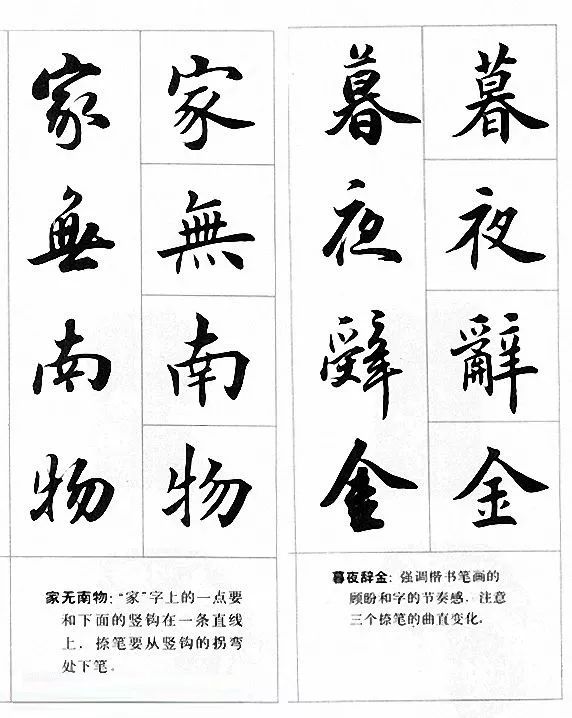 家 家
無 無
南 南
物 物
家无南物：“家”字上的一点要
和下面的竖钩在一条直线
上，捺笔要从竖钩的拐弯
处下笔。
暮 暮
夜 夜
辭 辭
金 金
暮夜辞金：强调楷书笔画的
顾盼和字的节奏感，注意
三个捺笔的曲直变化。